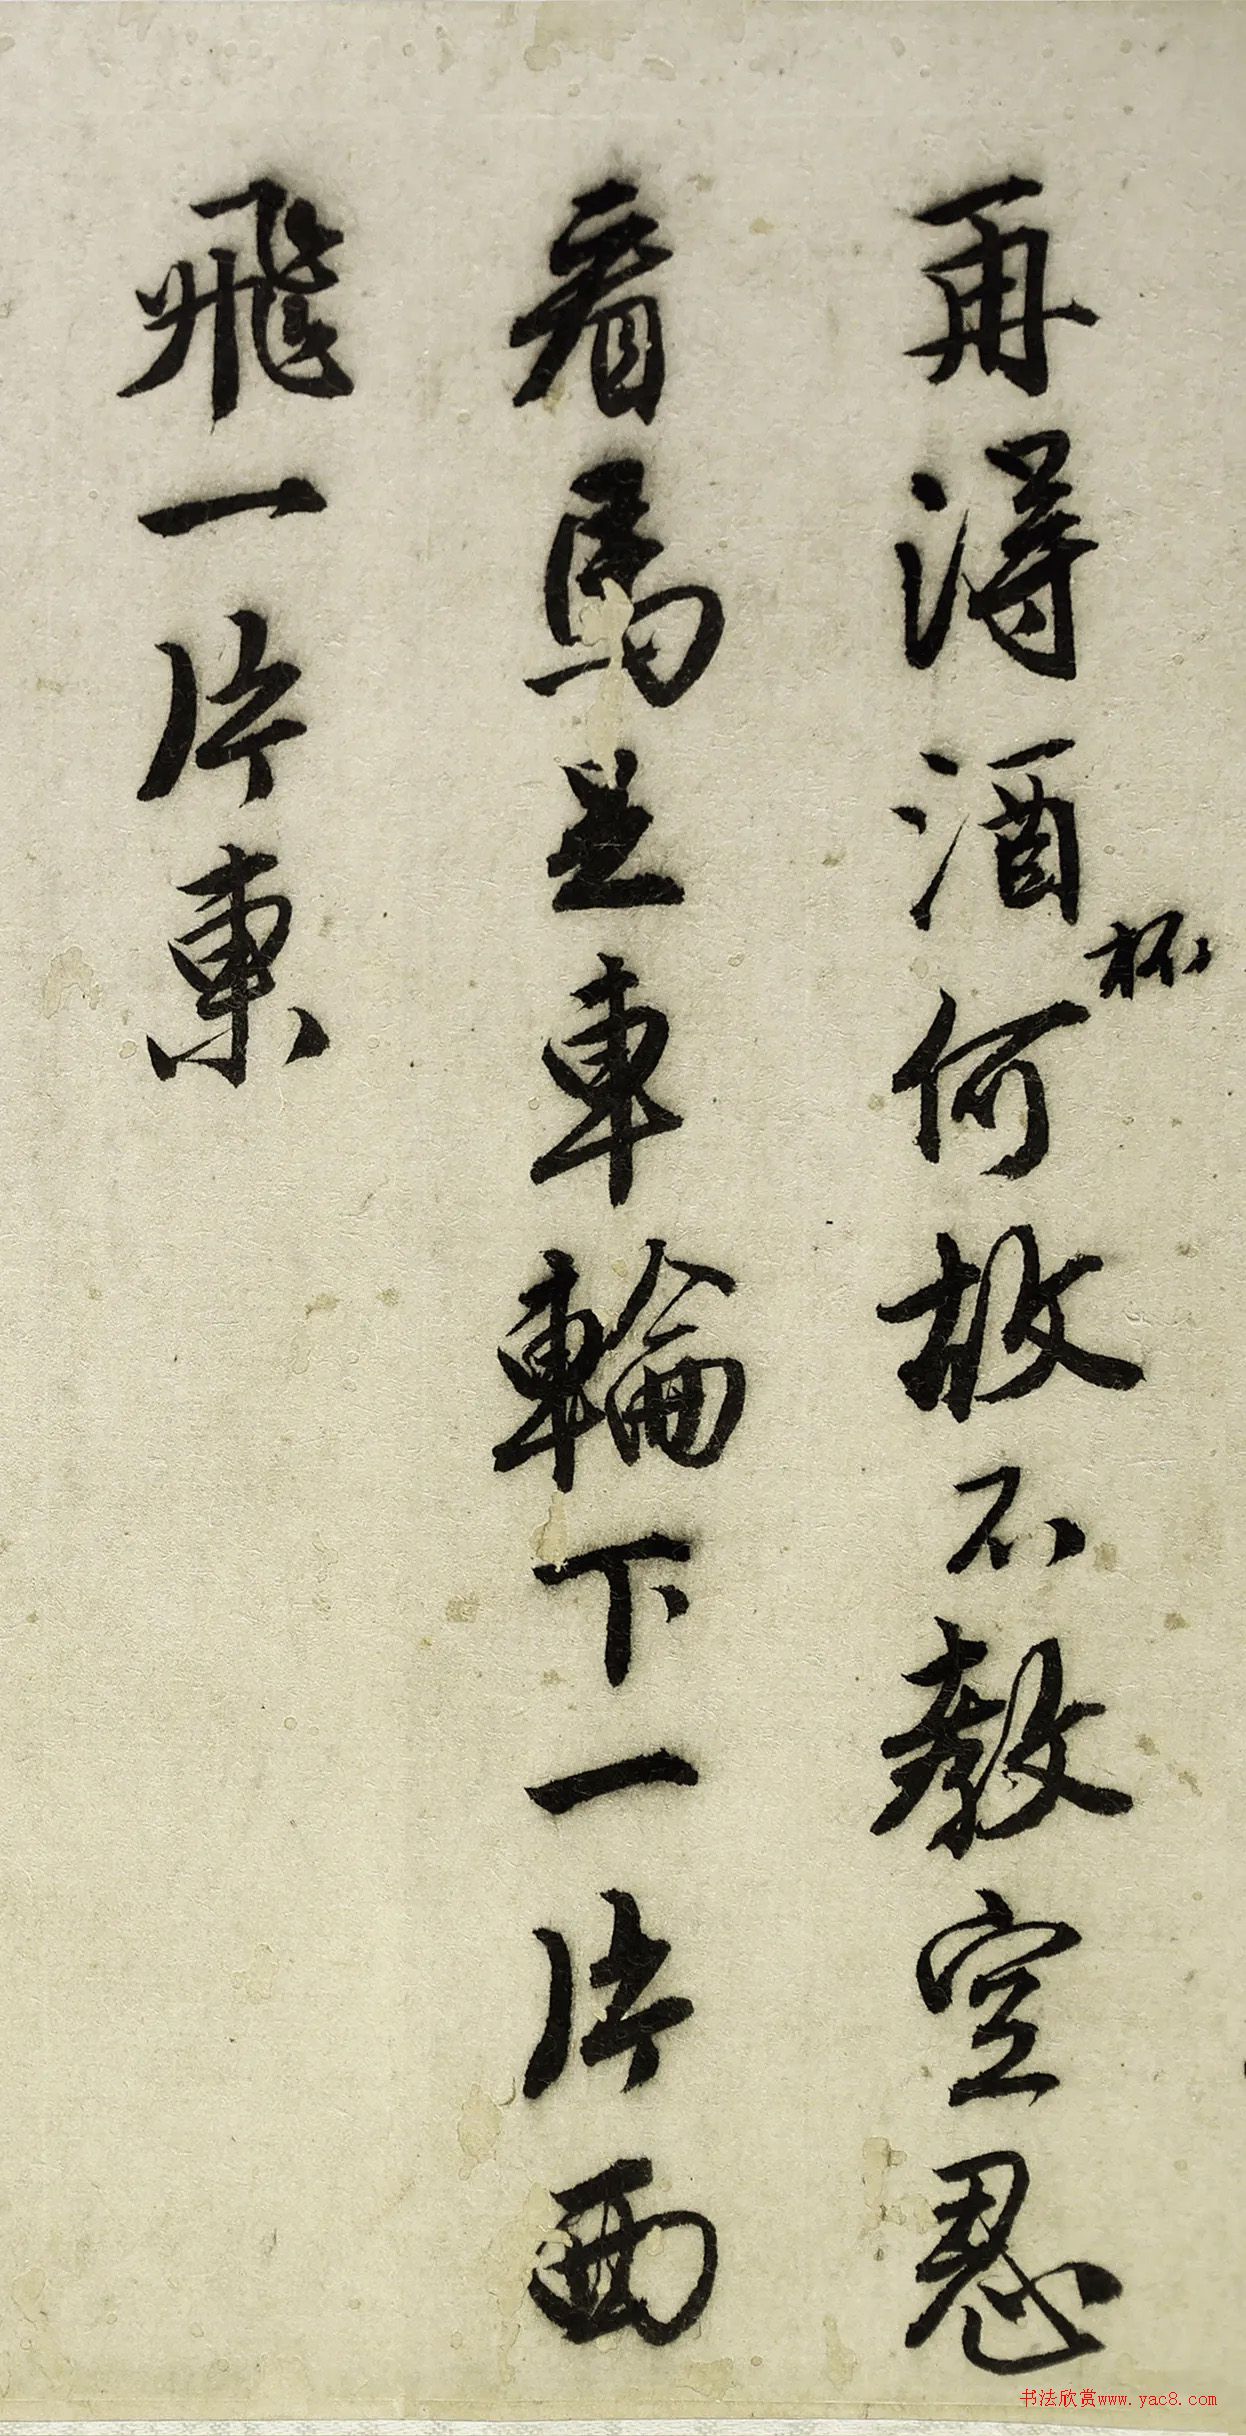 再得酒杯何故不教空忍
看馬足車輪下一片西
飛一片東
书法欣赏www.yac8.com